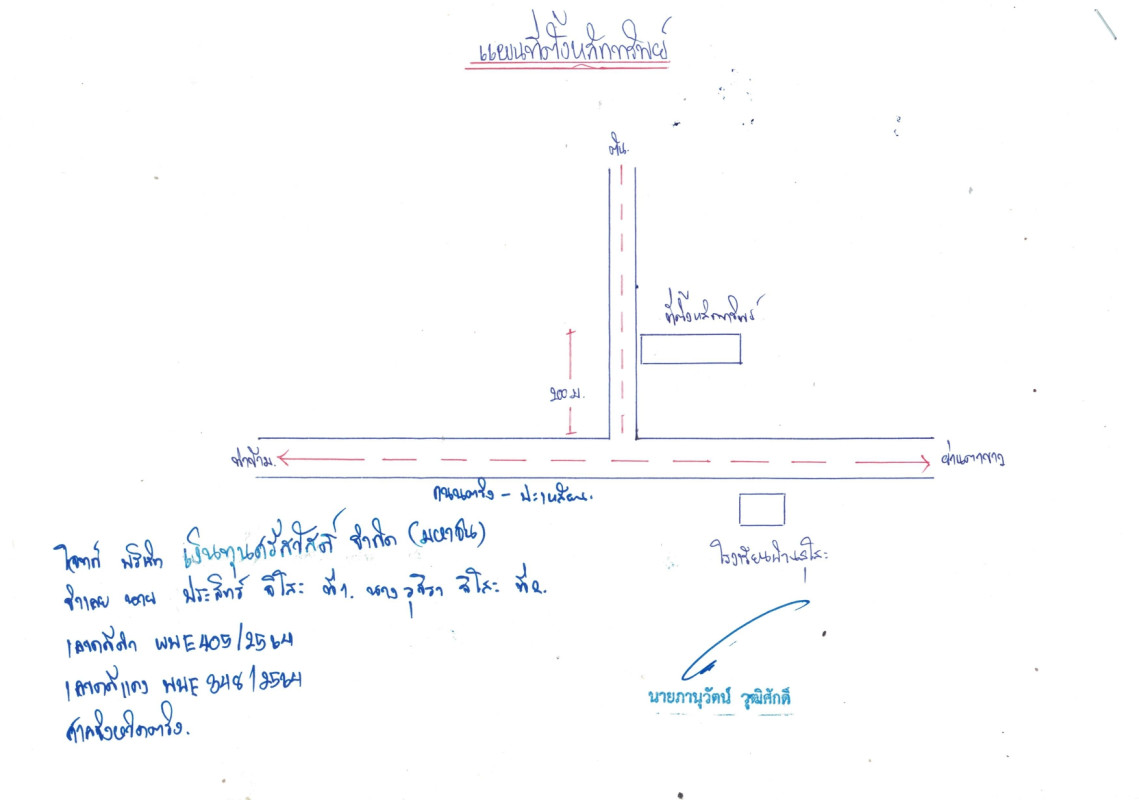 แผนที่ตั้งหลักทรัพย์
ตัน.
ที่ตั้งหลักทรัพย์
200 ม.
ท่าข้าม.
ย่านตาขาว
ถนนตรัง - ปะเหลียน.
โรงเรียนบ้านสุโสะ
โจทก์ บริษัท เงินทุนศรีสวัสดิ์ จำกัด (มหาชน)
จำเลย นาย ประสิทธ์ จิโสะ ที่ 1. นาง วุจิรา จิโสะ ที่ 2.
เลขคดีดำ ผบE405/2564
เลขคดีแดง ผบE848/2564
ศาลจังหวัดตรัง.
นายภานุวัตน์ วุฒิศักดิ์